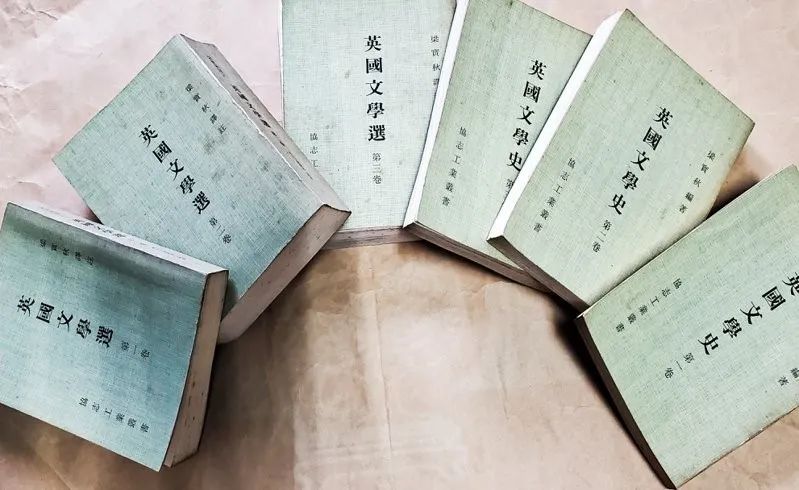 梁實秋譯註
英國文學選
第一卷
協志工業叢書
梁實秋譯註
英國文學選
第二卷
梁實秋譯
英國文學選
第三卷
協志工
英國文學史
第
協志工業叢書
梁實秋編著
英國文學史
第二卷
協志工業叢書
編著
英國文學史
第一卷
協志工業叢書